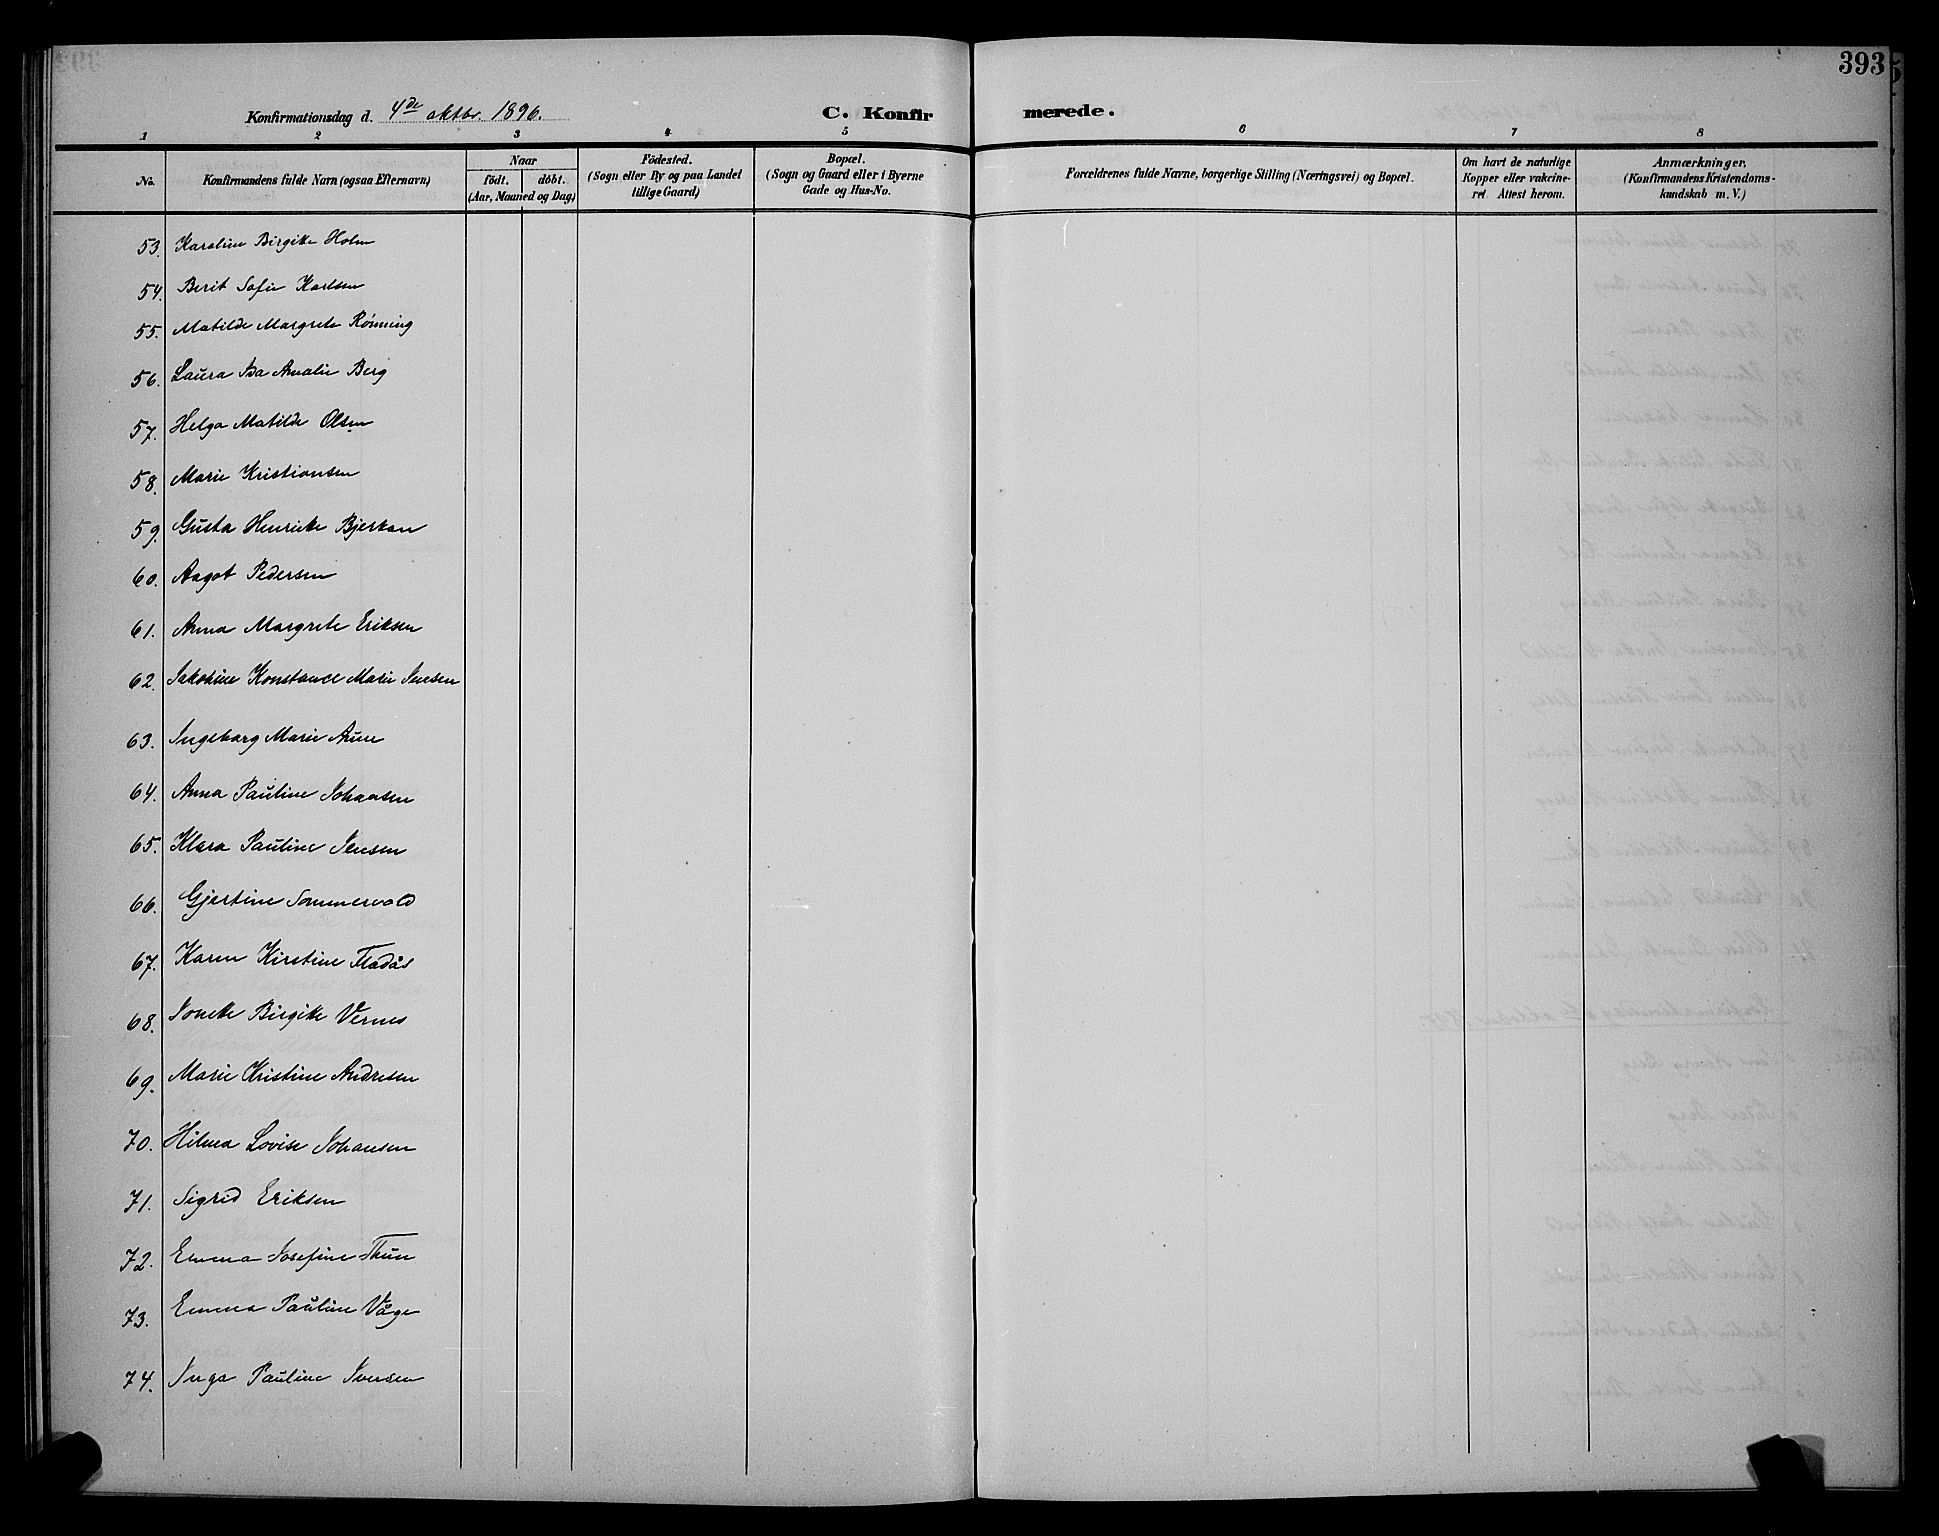 393
Konfirmationsdag d. 4de oktbr. 1896.
C. Konfirmerede.
1 2 3 4 5 6 7 8
No.
Konfirmandens fulde Navn (ogsaa Efternavn)
Naar
födt. döbt.
(Aar, Maaned og Dag)
Födested.
(Sogn eller By og paa Landet
tillige Gaard)
Bopæl.
(Sogn og Gaard eller i Byerne
Gade og Hus-No.
Forældrenes fulde Navne, borgerlige Stilling (Næringsvei) og Bopæl.
Om havt de naturlige
Kopper eller vakcine-
ret. Attest herom.
Anmærkninger.
(Konfirmandens Kristendoms-
kundskab m. V.)
53. Karoline Birgitte Holm
54. Berit Sofie Karlsen
55. Matilde Margrete Rönning
56. Laura Asa Amalie Berg
57. Helga Matilde Olsen
58. Marie Kristiansen
59. Gusta Henrikke Bjerkan
60. Aagot Pedersen
61. Anna Margrete Eriksen
62. Jakobine Konstance Marie Jensen
63. Ingeborg Marie Aune
64. Anna Pauline Johansen
65. Klara Pauline Jensen
66. Gjertine Sommervold
67. Karen Kirstine Fladås
68. Jonette Birgitte Vernes
69. Marie Kristine Andresen
70. Hilma Lovise Johansen
71. Sigrid Eriksen
72. Emma Josefine Thun
73. Emma Pauline Våge
74. Inga Pauline Iversen